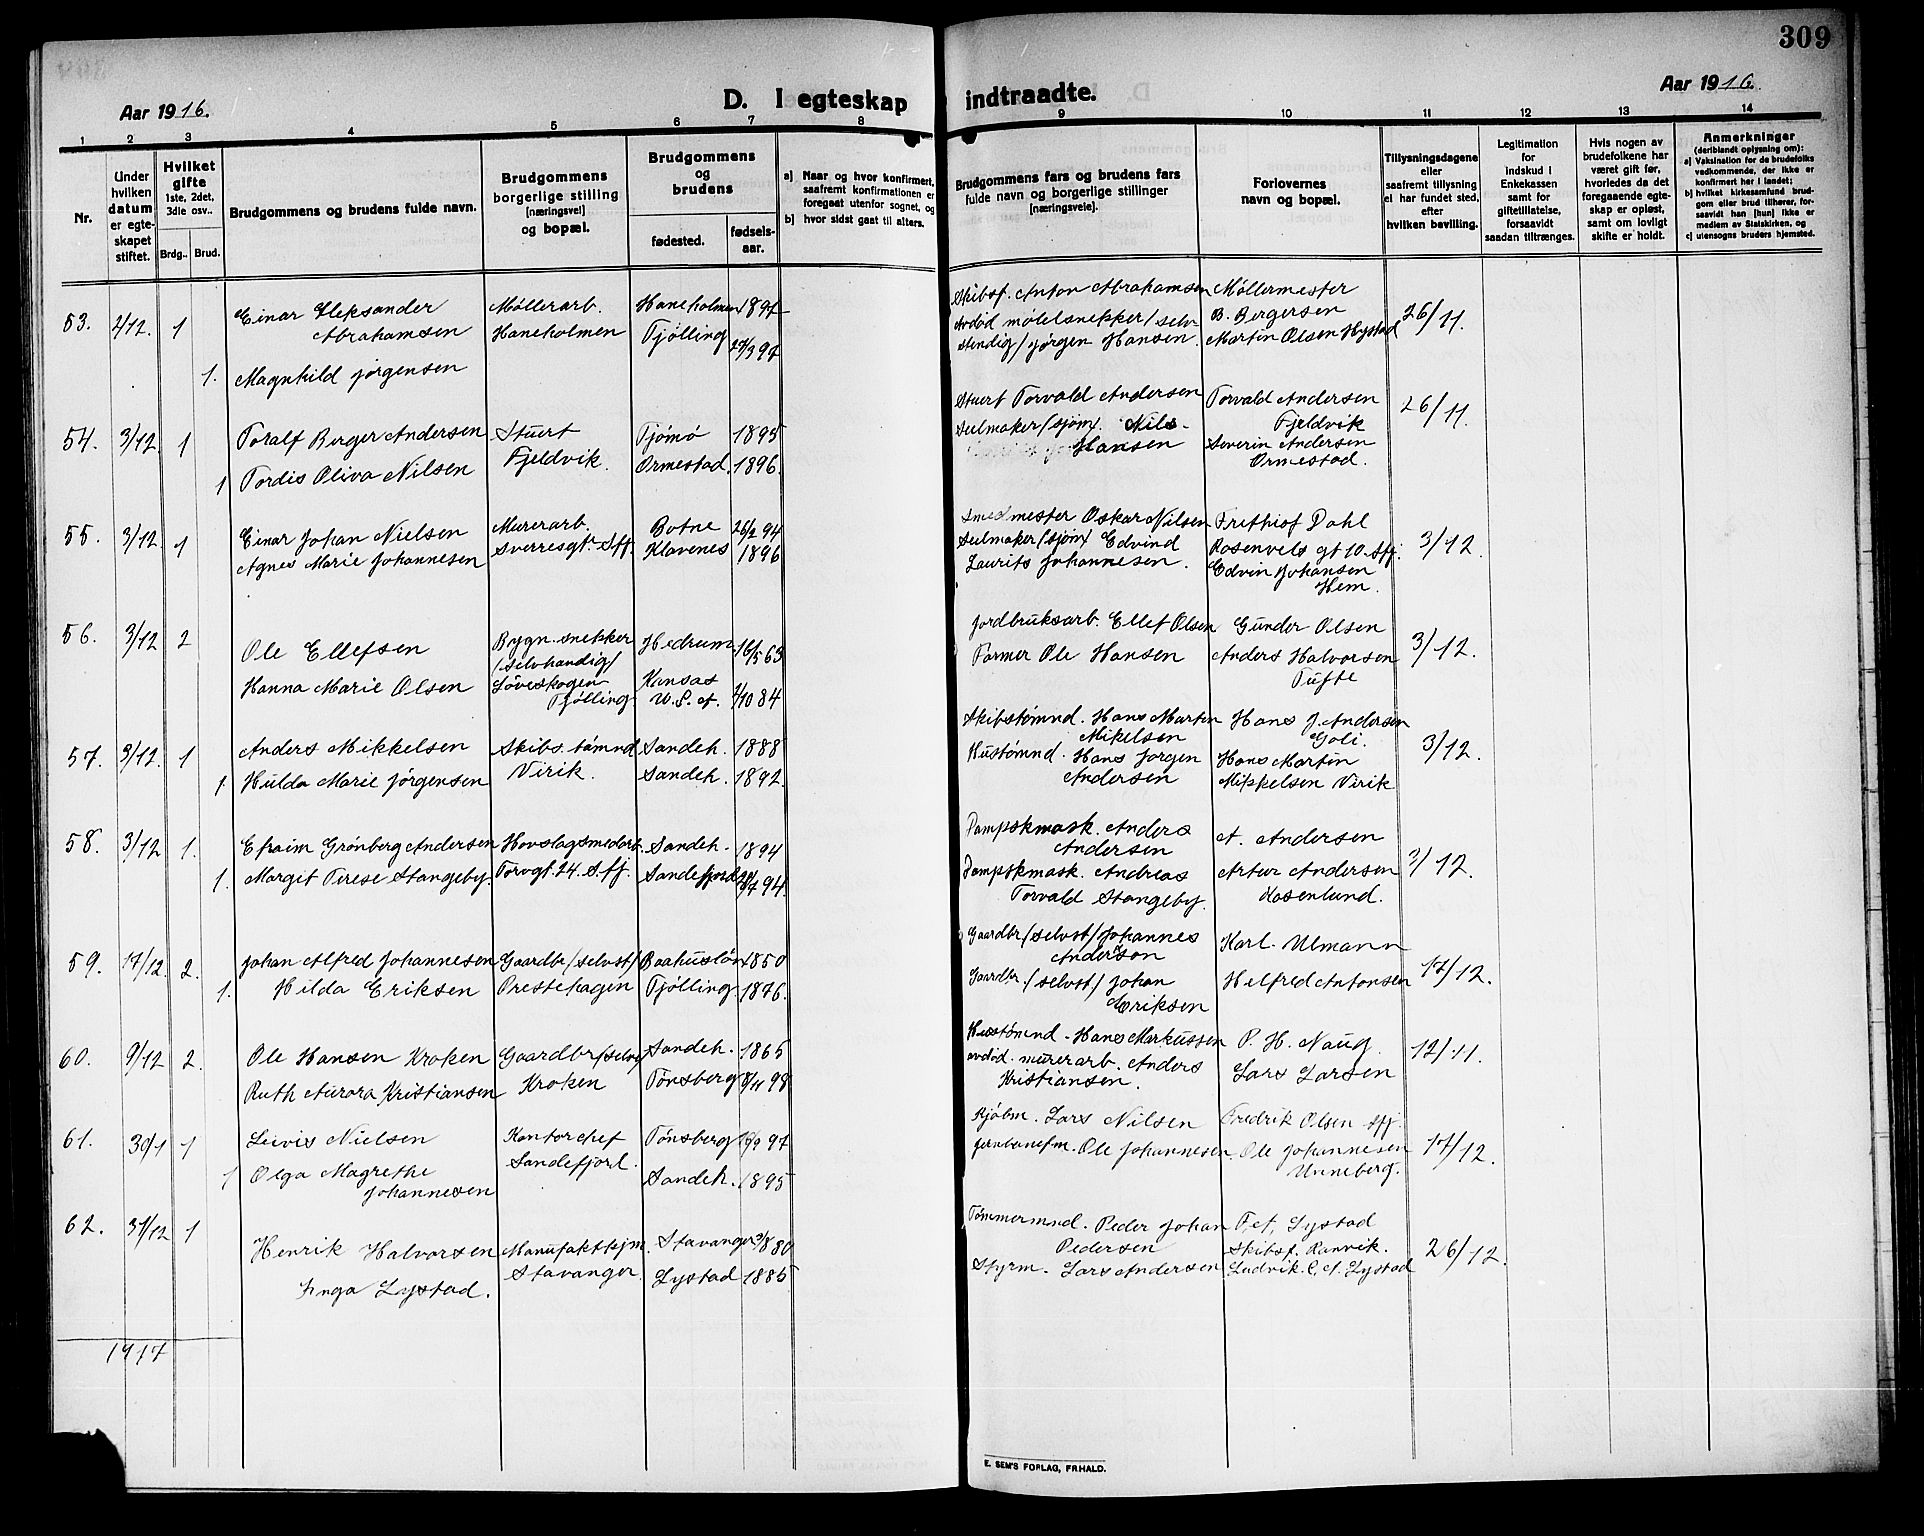 309
Aar 1916.
D. I egteskap indtraadte.
Aar 1916.
1 2 3 4 5 6 7 8 9 10 11 12 13 14
Nr.
Under hvilken datum er egte-skapet stiftet.
Hvilket gifte 1ste, 2det, 3die osv..
Brdg.. Brud.
Brudgommens og brudens fulde navn.
Brudgommens borgerlige stilling [næringsvei] og bopæl.
Brudgommens og brudens
fødested. fødsels-aar.
a) Naar og hvor konfirmert, saafremt konfirmationen er foregaaet utenfor sognet, og
b) hvor sidst gaat til alters.
Brudgommens fars og brudens fars fulde navn og borgerlige stillinger [næringsveie].
Forlovernes navn og bopæl.
Tillysningsdagene eller saafremt tillysning ei har fundet sted, efter hvilken bevilling.
Legitimation for indskud i Enkekassen samt for giftetillatelse, forsaavidt saadan tiltrænges.
Hvis nogen av brudefolkene har været gift før, hvorledes da det foregaaende egte-skap er opløst, samt om lovligt skifte er holdt.
Anmerkninger (deriblandt oplysning om):
a) Vaksination for de brudefolks vedkommende, der ikke er konfirmert her i landet;
b) hvilket kirkesamfund brud-gom eller brud tilhører, for-saavidt han [hun] ikke er medlem av Statskirken, og
c) utensogns bruders hjemsted.
53. 2/12. 1 Einar Aleksander Abrahamsen Møllerarb. Haneholmen Haneholmen 1897 Skibsf. Anton Abrahamsen Møllermester B. Bergersen 26/11.
1. Magnhild Jørgensen Tjølling 27/3 97 Avdød møbelsnekker/selvstendig/ Jørgen Hansen. Martin Olsen Hystad
54. 3/12 1 Toralf Berger Andersen Stuert Fjeldvik. Tjømø 1895 Stuert Torvald Andersen Torvald Andersen Fjeldvik 26/11.
1 Tordis Oliva Nilsen Ormestad. 1896. Seilmaker/sjøm/. Nils Hansen Severin Andersen Ormestad.
55. 3/12 1 Einar Johan Nielsen Murerarb. Sverresgt. Sfj. Botne 26/2 94 Smedmester Oskar Nilsen Frithiof Dahl Rosenvels gt 10. Sfj. 3/12.
Agnes Marie Johannesen Klavenes 1896 Seilmaker/sjøm/ Edvind Laurits Johannesen. Edvin Johansen Hem.
56. 3/12 2 Ole Ellefsen Bygn. snekker /selvhandig/ Løveskogen Tjølling. Hedrum 16/5 63 Jordbruksarb. Ellef Olsen Gunder Olsen 3/12.
Hanna Marie Olsen Kansas U.S.A. 2/10 84 Farmer Ole Hansen Anders Halvorsen Tufte
57. 3/12. 1 Anders Mikkelsen Skibs.tømnd Virik. Sandeh. 1888 Skibstømnd. Hans Martin Mikelsen Hans J. Andersen Goli. 3/12.
1. Hulda Marie Jørgensen Sandeh. 1892. Hustømnd. Hans Jørgen Andersen Hans Martin Mikkelsen Virik
58. 3/12 1. Efraim Grønberg Andersen Hovslagsmedarb. Torvgt. 24. S.fj. Sandeh. 1894 Dampskmask. Anders Andersen A. Andersen 3/12.
1. Margit Terese Stangeby. Sandefjord 94. Dampskmask. Andreas Torvald Stangeby. Artur Andersen Rosenlund.
59. 17/12. 2. Johan Alfred Johannesen Gaardbr/selvst/ Prestehagen Baahuslän 1850 Gaardbr/selvst/ Johannes Anderson Karl. Ulmann 17/12.
1. Hilda Eriksen Tjølling 1876. Gaardbr./selvst/ Johan Eriksen Helfred Antonsen
60. 9/12 2. Ole Hansen Kroken Gaardbr/selvs/ Kroken Sandeh. 1865 Hustømnd. Hans Markussen P. H. Naug. 12/11.
Ruth Aurora Kristiansen Tønsberg 8/11 98 avdød. murerarb. Anders Kristiansen. Lars Larsen
61. 30/1 1 Leivis Nielsen Kontorchef Sandefjord. Tønsberg 97 Kjøbm. Lars Nilsen Fredrik Olsen Sfj. 17/12.
1 Olga Magrethe Johannesen Sandeh. 1895 Jernbanefm. Ole Johannesen. Ole Johannesen Unneberg.
62. 31/12 1 Henrik Halvorsen Manufaktkjm. Stavanger. Stavanger 3/8 80 Tømmermnd. Peder Johan Pedersen F. A. Lystad Skibsf. Ranvik. 26/12.
Inga Lystad. Lystad 1885 Styrm. Lars Andersen Ludvik. C. A. Lystad
1917
E. SEM'S FORLAG, FR.HALD.